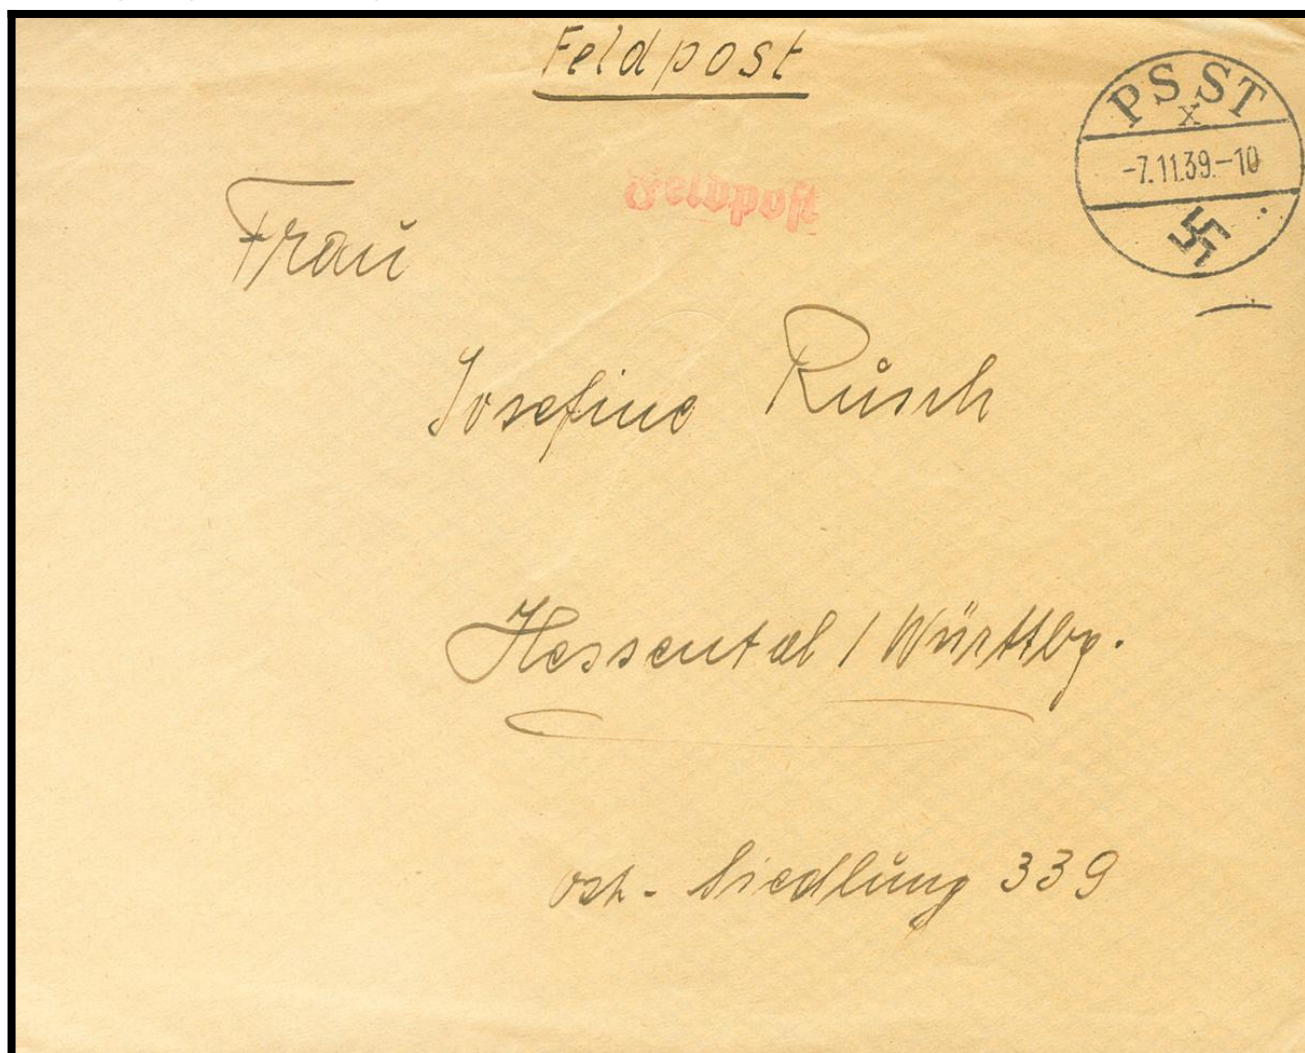 Feldpost
PSST
x
-7.11.39.-10
Feldpost
Frau
Josefine Rusch
Hessental / Württbg.
Ost - Siedlung 339